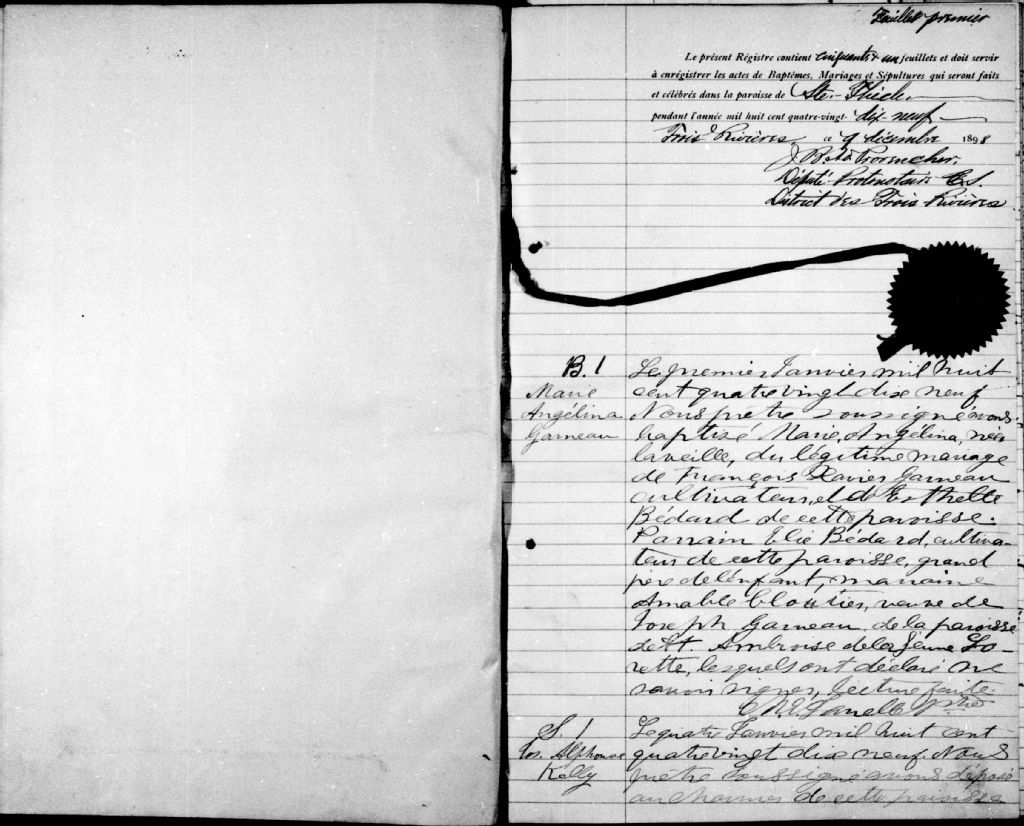 Feuillet premier
Le présent Régistre contient cinquante & un feuillets et doit servir
à enrégistrer les actes de Baptêmes, Mariages et Sépultures qui seront faits
et célébrés dans la paroisse de Ste-Thècle
pendant l'année mil huit cent quatre-vingt-dix-neuf
Trois Rivières ce 9 décembre 1898
Député Protonotaire C.S.
District des Trois-Rivières
B. 1
Marie
Angélina
Garneau
Le premier Janvier mil huit
cent quatre vingt dix neuf
Nous prêtre soussigné avons
baptisé Marie, Angélina, née
la veille, du légitime mariage
de François Xavier Garneau
cultivateur, et de
Bédard de cette paroisse.
Parrain Elie Bédard, cultiva-
teur de cette paroisse, grand
père de l'enfant, marraine
Amable bloutier, veuve de
Joseph Garneau, de la paroisse
de St. Ambroise de la Jeune Lo-
rette, lesquels ont déclaré ne
savoir signer, lecture faite.
Ptre
S. 1
Jos. Alphonse
Kelly
Le quatre Janvier mil huit cent
quatre vingt dix neuf. Nous
prêtre soussigné avons déposé
au charnier de cette paroisse